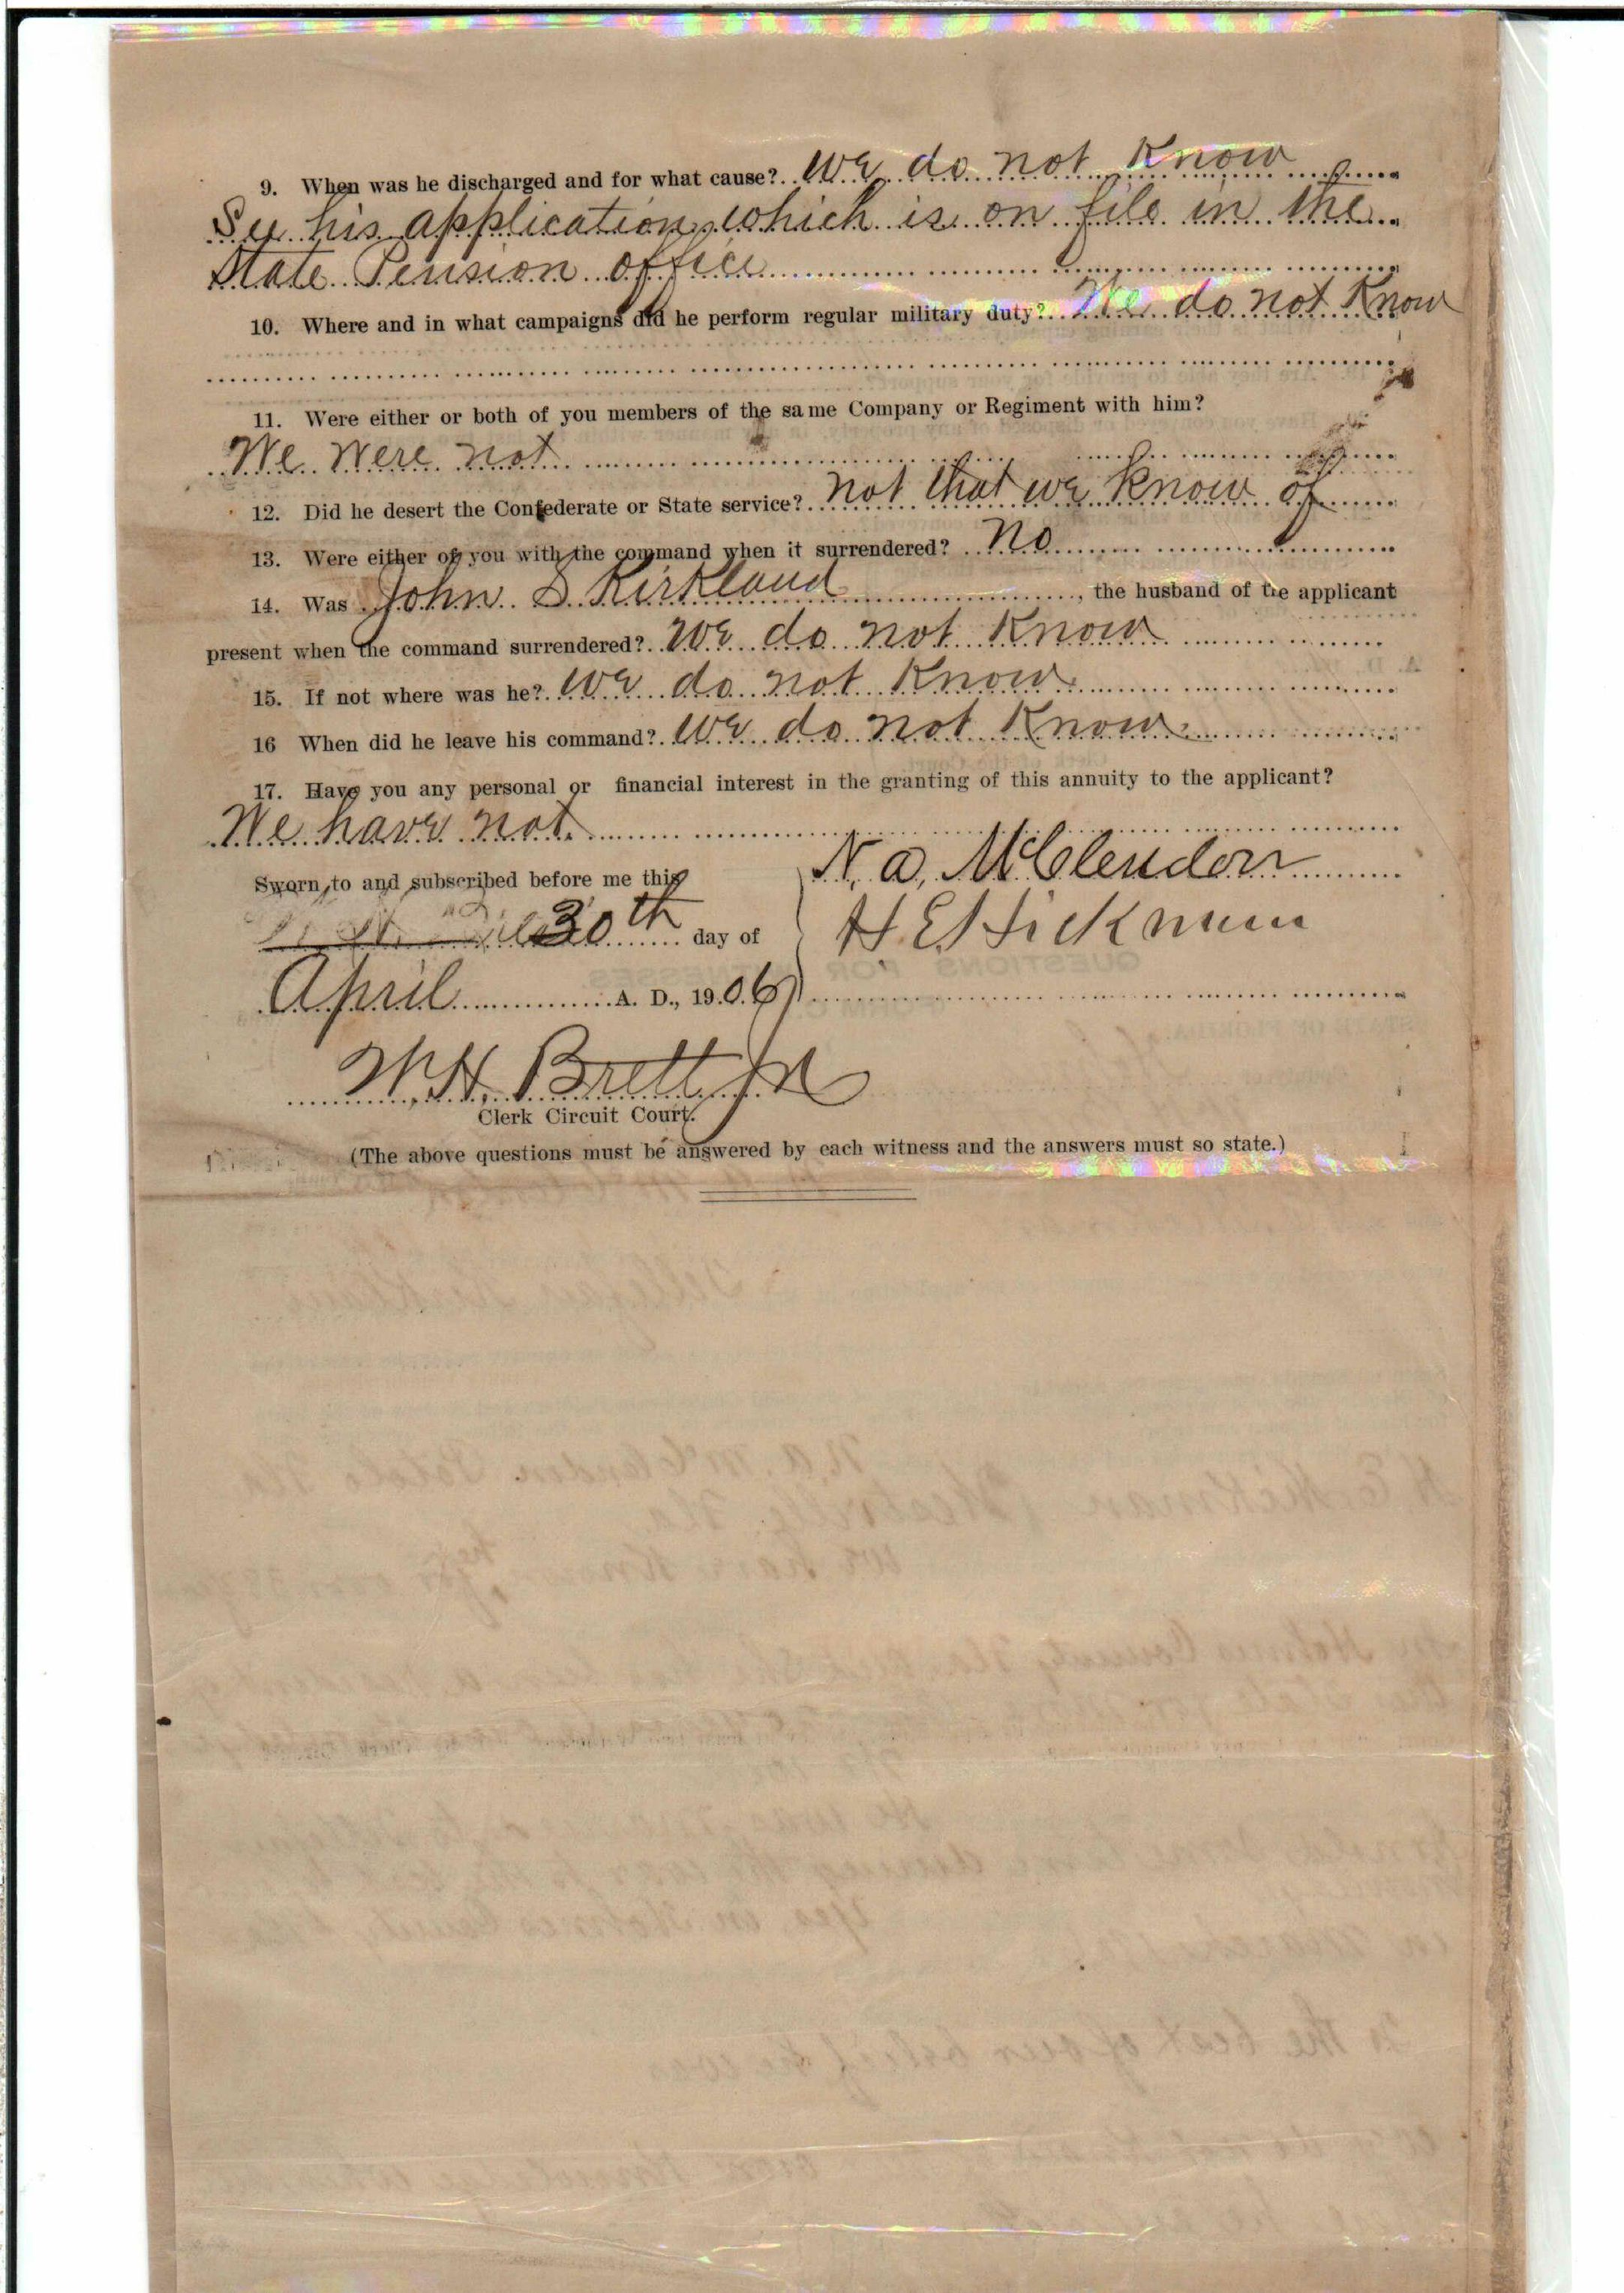 9. When was he discharged and for what cause? We do not Know
See his application which is on file in the
State Pension office
10. Where and in what campaigns did he perform regular military duty? We do not Know
11. Were either or both of you members of the same Company or Regiment with him?
We were not
12. Did he desert the Confederate or State service? not that we know of
13. Were either of you with the command when it surrendered? No
14. Was John S Kirkland, the husband of the applicant
present when the command surrendered? We do not Know
15. If not where was he? We do not Know
16 When did he leave his command? We do not Know
17. Have you any personal or financial interest in the granting of this annuity to the applicant?
We have not.
Sworn to and subscribed before me this
30th day of
April A. D., 1906
N. a. McClendon
H. E. Hickman
W. H. Brett Jr
Clerk Circuit Court.
(The above questions must be answered by each witness and the answers must so state.)